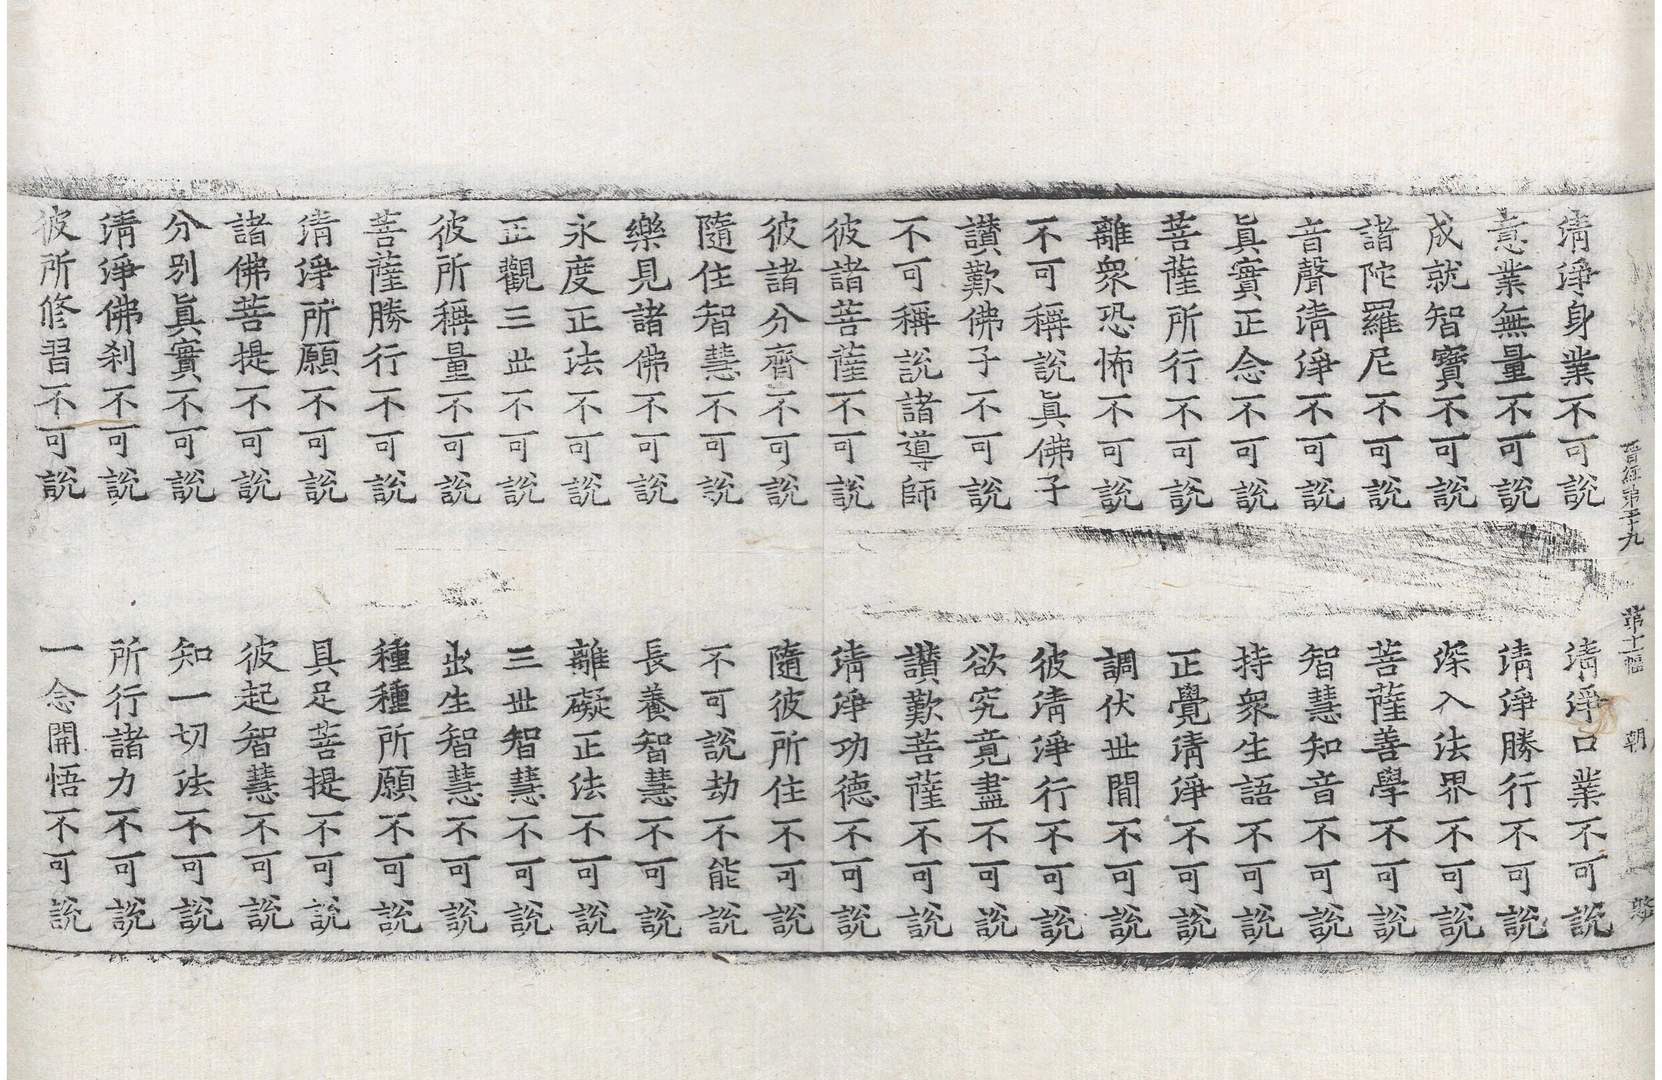 晉經第二十九 第十一幅 朝
清淨身業不可說 清淨口業不可說
意業無量不可說 清淨勝行不可說
成就智寶不可說 深入法界不可說
諸陀羅尼不可說 菩薩善學不可說
音聲清淨不可說 智慧知音不可說
眞實正念不可說 持衆生語不可說
菩薩所行不可說 正覺清淨不可說
離衆恐怖不可說 調伏世間不可說
不可稱說眞佛子 彼清淨行不可說
讃歎佛子不可說 欲究竟盡不可說
不可稱說諸導師 讃歎菩薩不可說
彼諸菩薩不可說 清淨功德不可說
彼諸分齊不可說 隨彼所住不可說
隨住智慧不可說 不可說劫不能說
樂見諸佛不可說 長養智慧不可說
永度正法不可說 離礙正法不可說
正觀三世不可說 三世智慧不可說
彼所稱量不可說 出生智慧不可說
菩薩勝行不可說 種種所願不可說
清淨所願不可說 具足菩提不可說
諸佛菩提不可說 彼起智慧不可說
分別眞實不可說 知一切法不可說
清淨佛刹不可說 所行諸力不可說
彼所修習不可說 一念開悟不可說